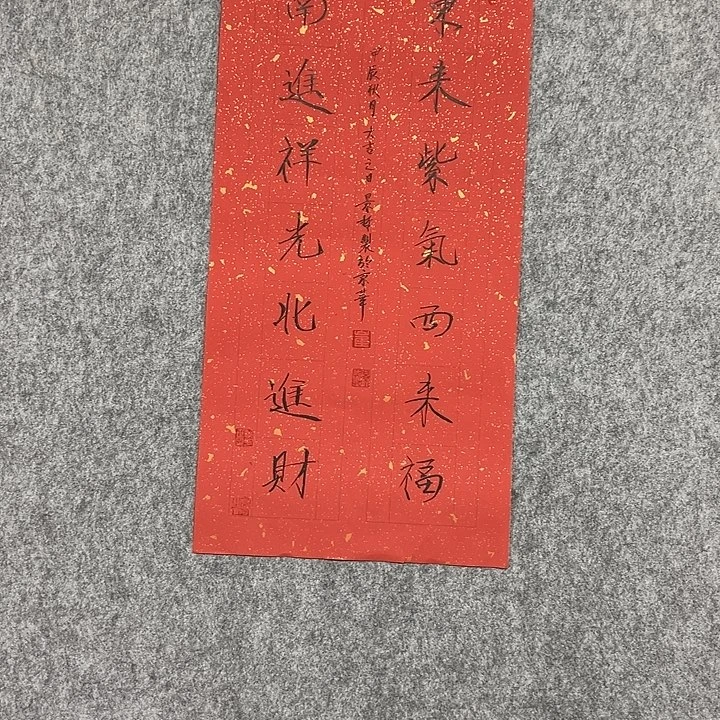 東来紫氣西来福
甲辰秋月大吉之日景軒製於京華
南進祥光北進財